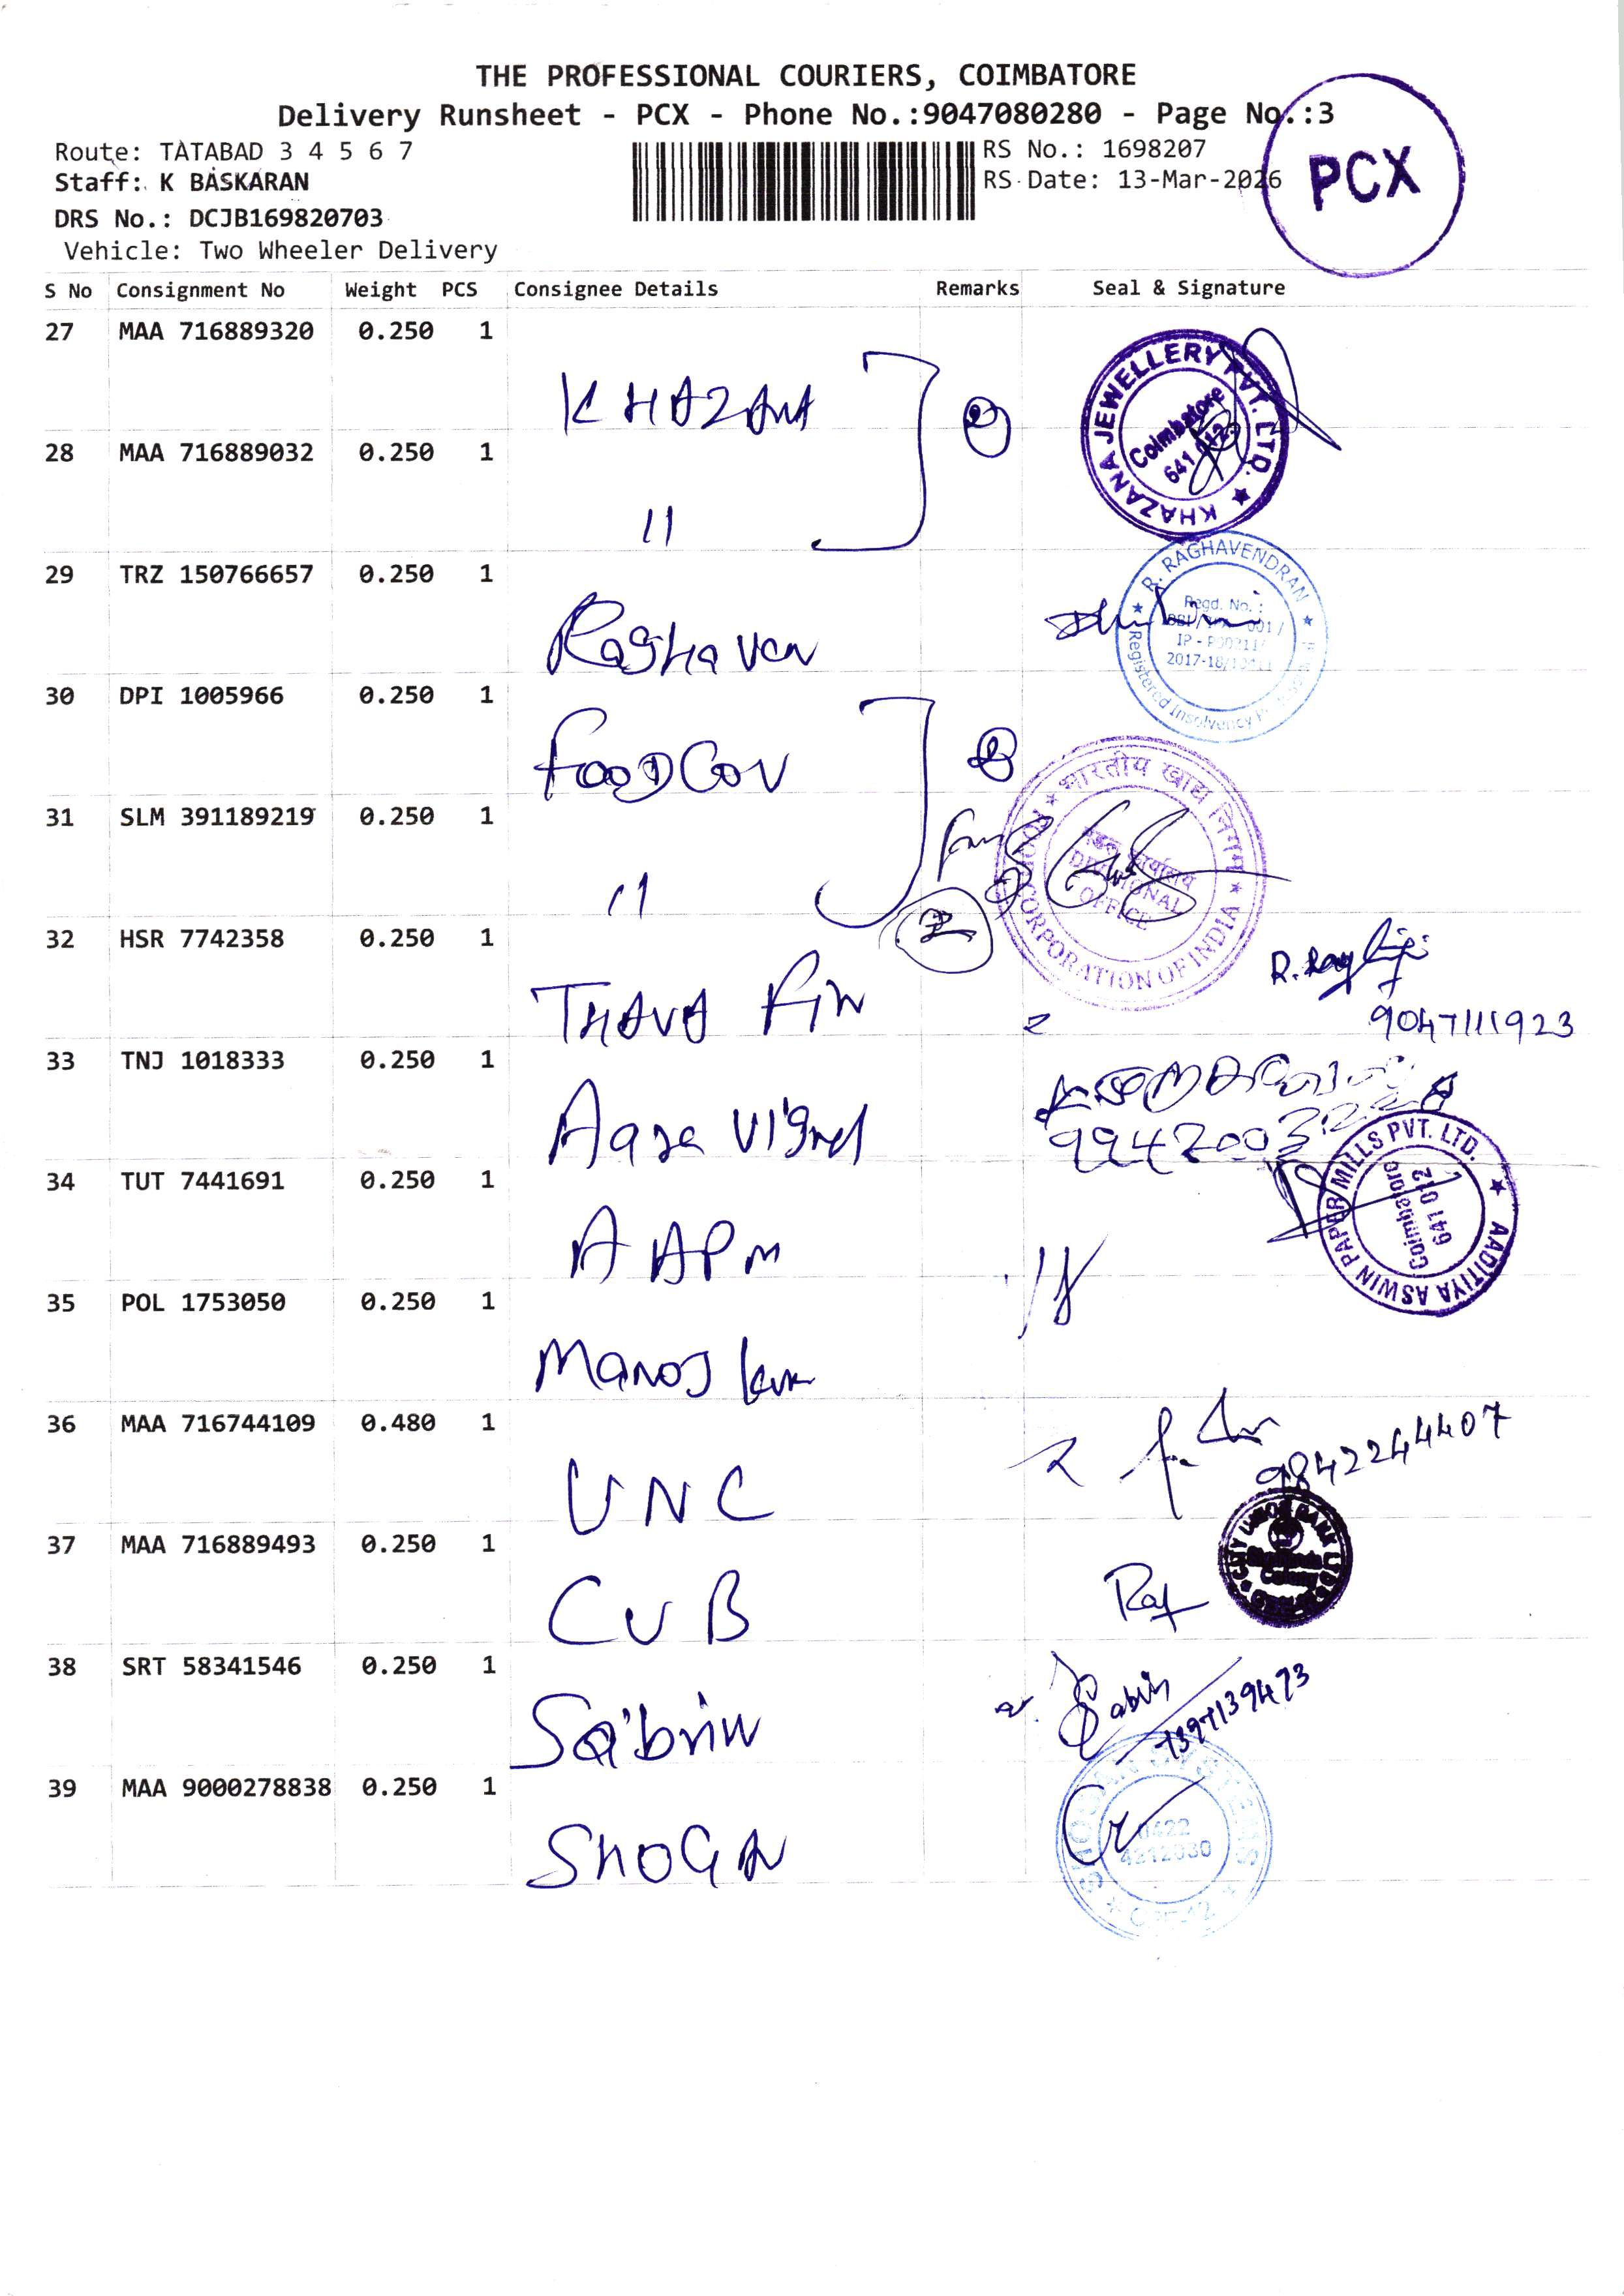 THE PROFESSIONAL COURIERS, COIMBATORE
Delivery Runsheet - PCX - Phone No.:9047080280 - Page No.:3
Route: TATABAD 3 4 5 6 7
RS No.: 1698207
Staff: K BASKARAN
RS Date: 13-Mar-2026
PCX
DRS No.: DCJB169820703
Vehicle: Two Wheeler Delivery
S No Consignment No Weight PCS Consignee Details Remarks Seal & Signature
27 MAA 716889320 0.250 1
KHAZANA
KHAZANA JEWELLERY PVT. LTD.
Coimbatore
641 012
28 MAA 716889032 0.250 1
"
29 TRZ 150766657 0.250 1
Raghaven
R. RAGHAVENDRAN
Regd. No. :
2017-18/
Registered Insolvency
30 DPI 1005966 0.250 1
FOODCOV
भारतीय खाद्य निगम
मंडल कार्यालय
DIVISIONAL
OFFICE
FOOD CORPORATION OF INDIA
31 SLM 391189219 0.250 1
"
2
32 HSR 7742358 0.250 1
THAVA FIN
9047111923
33 TNJ 1018333 0.250 1
34 TUT 7441691 0.250 1
AAPM
AADITIYA ASWIN PAPER MILLS PVT. LTD.
Coimbatore
641 012
35 POL 1753050 0.250 1
Manoj kum
36 MAA 716744109 0.480 1
UNC
9842244407
37 MAA 716889493 0.250 1
CUB
Raj
CITY UNION BANK LTD
Colony
38 SRT 58341546 0.250 1
Sabrin
Sabin
7397139473
39 MAA 9000278838 0.250 1
SHOGAN
SHOGAN SYSTEMS
0422
4212030